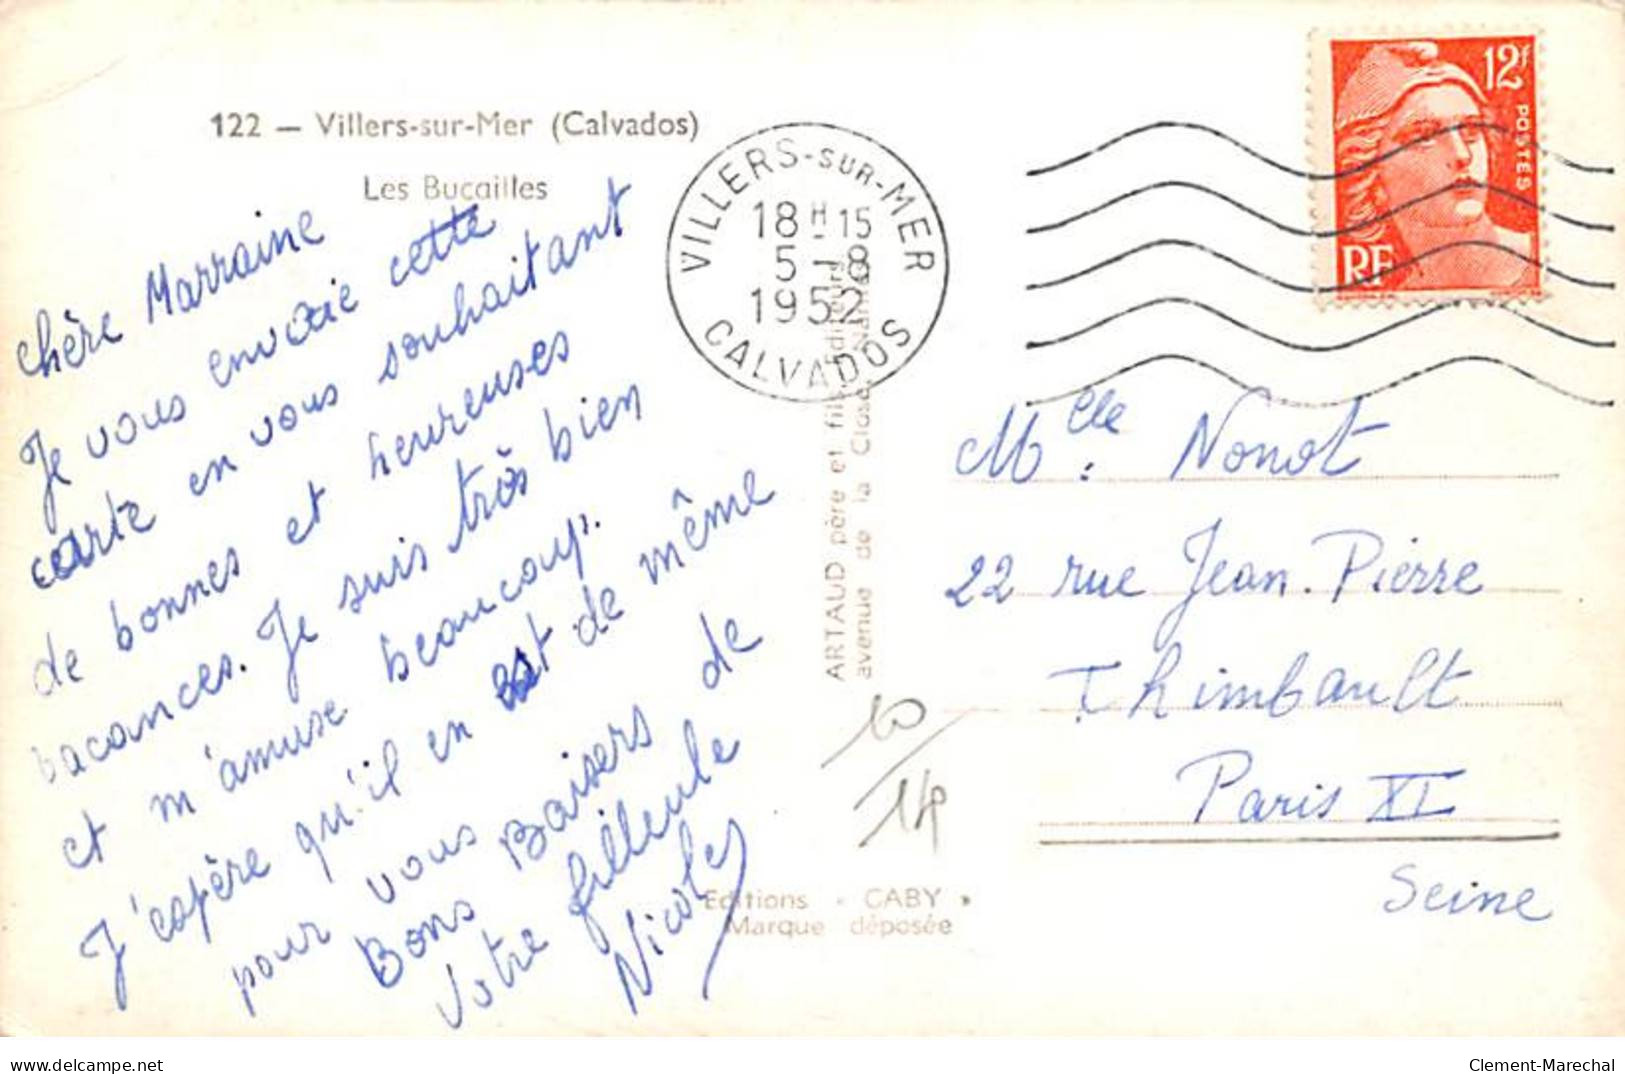 122 — Villers-sur-Mer (Calvados)
Les Bucailles
chère Marraine
Je vous envoie cette
carte en vous souhaitant
de bonnes et heureuses
vacances. Je suis très bien
et m'amuse beaucoup.
J'espère qu'il en est de même
pour vous
Bons Baisers de
votre filleule
Nicole
VILLERS-SUR-MER
18 H 15
5 - 8
1952
CALVADOS
ARTAUD père et fils, Editeurs
avenue de la Close, Nantes
12f
POSTES
RF
Mlle. Nonot
22 rue Jean-Pierre
Thimbault
Paris XI
Seine
10
Editions « CABY »
Marque déposée
delcampe.net
Clement-Marechal